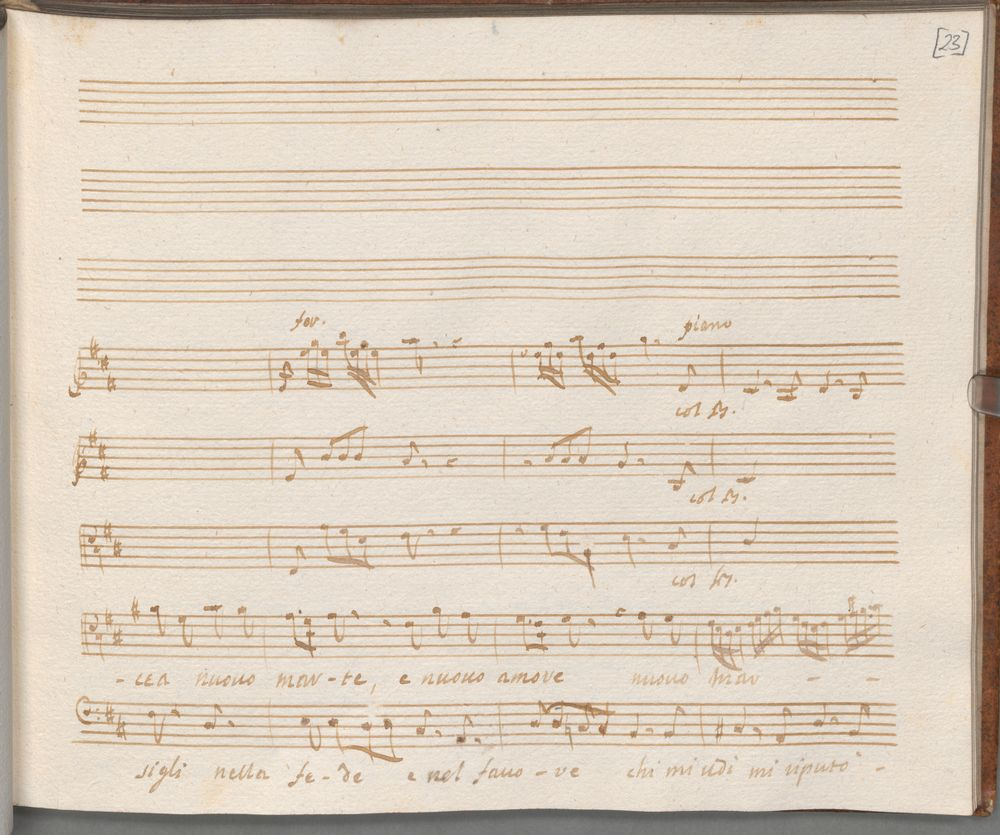 [23]
for.
piano
col
col
col
- cea nuovo mar-te, e nuovo amore nuovo mar - - -
sigli nella fe-de e nel favo-re chi mi udi mi riputò -